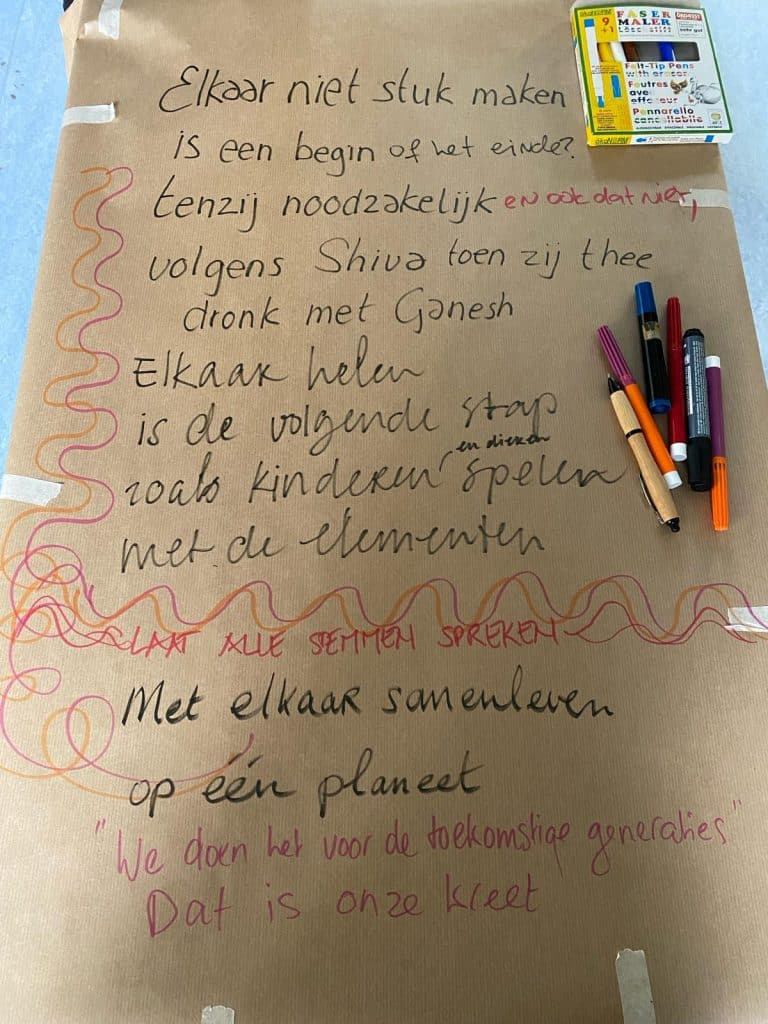 Elkaar niet stuk maken
is een begin of het einde?
tenzij noodzakelijk en ook dat niet,
volgens Shiva toen zij thee
dronk met Ganesh
Elkaar helen
is de volgende stap
en dieren
zoals kinderen spelen
met de elementen
LAAT ALLE STEMMEN SPREKEN
Met elkaar samenleven
op één planeet
"We doen het voor de toekomstige generaties"
Dat is onze kreet
9
+1
FASER
MALER
Löschstift
ÖKO-TEST
sehr gut
Felt-Tip Pens
with eraser
Feutres
avec
effaceur
Pennarello
cancellabile
ökoNORM